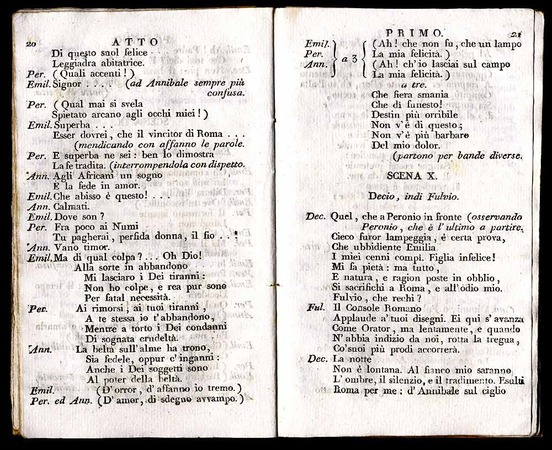 20 ATTO
Di questo suol felice
Leggiadra abitatrice.
Per. ( Quali accenti ! )
Emil. Signor . . . . (ad Annibale sempre più
confusa.
Per. ( Qual mai si svela
Spietato arcano agli occhi miei ! )
Emil. Superba . . .
Esser dovrei, che il vincitor di Roma . . .
(mendicando con affanno le parole.
Per. E superba ne sei : ben lo dimostra
La fe tradita. (interrompendola con dispetto.
Ann. Agli Africani un sogno
E la fede in amor.
Emil. Che abisso è questo! . . .
Ann. Calmati.
Emil. Dove son ?
Per. Fra poco ai Numi
Tu pagherai, perfida donna, il fio . . !
Ann. Vano timor.
Emil. Ma di qual colpa ? . . . Oh Dio!
Alla sorte in abbandono
Mi lasciaro i Dei tiranni :
Non ho colpe, e rea pur sono
Per fatal necessità.
Per. Ai rimorsi, ai tuoi tiranni
A te stessa io t'abbandono,
Mentre a torto i Dei condanni
Di sognata crudeltà.
Ann. La beltà sull'alme ha trono,
Sia fedele, oppur c'inganni :
Anche i Dei soggetti sono
Al poter della beltà.
Emil. (D'orror, d'affanno io tremo.)
Per. ed Ann. (D'amor, di sdegno avvampo.)
PRIMO. 21
Emil. (Ah! che non fu, che un lampo
Per. a 3 La mia felicità.)
Ann. (Ah! ch'io lasciai sul campo
La mia felicità.)
a tre.
Che fiera smania
Che dì funesto!
Destin più orribile
Non v'è di questo;
Non v'è più barbaro
Del mio dolor.
(partono per bande diverse.
SCENA X.
Decio, indi Fulvio.
Dec. Quel, che a Peronio in fronte (osservando
Peronio, che è l'ultimo a partire,
Cieco furor lampeggia, è certa prova,
Che ubbidiente Emilia
I miei cenni compì. Figlia infelice!
Mi fa pietà : ma tutto,
E natura, e ragion poste in obblio,
Si sacrifichi a Roma, e all'odio mio.
Fulvio, che rechi ?
Ful. Il Console Romano
Applaude a'tuoi disegni. Ei qui s'avanza
Come Orator, ma lentamente, e quando
N'abbia indizio da noi, rotta la tregua,
Co'suoi più prodi accorrerà.
Dec. La notte
Non è lontana. Al fianco mio saranno
L'ombre, il silenzio, e il tradimento. Esulti
Roma per me : d'Annibale sul ciglio